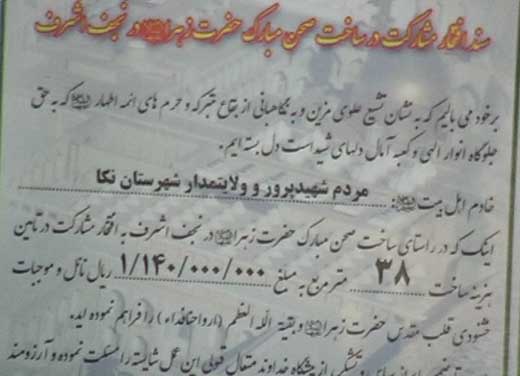 سند افتخار مشارکت در ساخت صحن مبارک حضرت زهرا در نجف اشرف
برخود می بالیم که به نشان تشیع علوی مزین و به نگاهبانی از بقاع متبرکه و حرم های ائمه اطهار که به حق
جلوگاه انوار الهی و کعبه آمال دلهای شیداست دل بسته ایم.
خادم اهل بیت : مردم شهیدپرور و ولایتمدار شهرستان نکا
اینک که در راستای ساخت صحن مبارک حضرت زهرا در نجف اشرف به افتخار مشارکت در تامین
هزینه ساخت ۳۸ مترمربع به مبلغ ۱/۱۴۰/۰۰۰/۰۰۰ ریال نائل و موجبات
خشنودی قلب مقدس حضرت زهرا و بقیة الله العظم (ارواحنافداء) را فراهم نموده اید.
خداوند متعال قبولی این عمل شایسته را مسئلت نموده و آرزومند